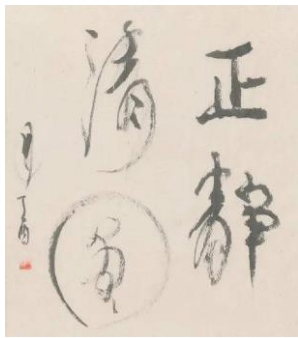 正靜
清圓